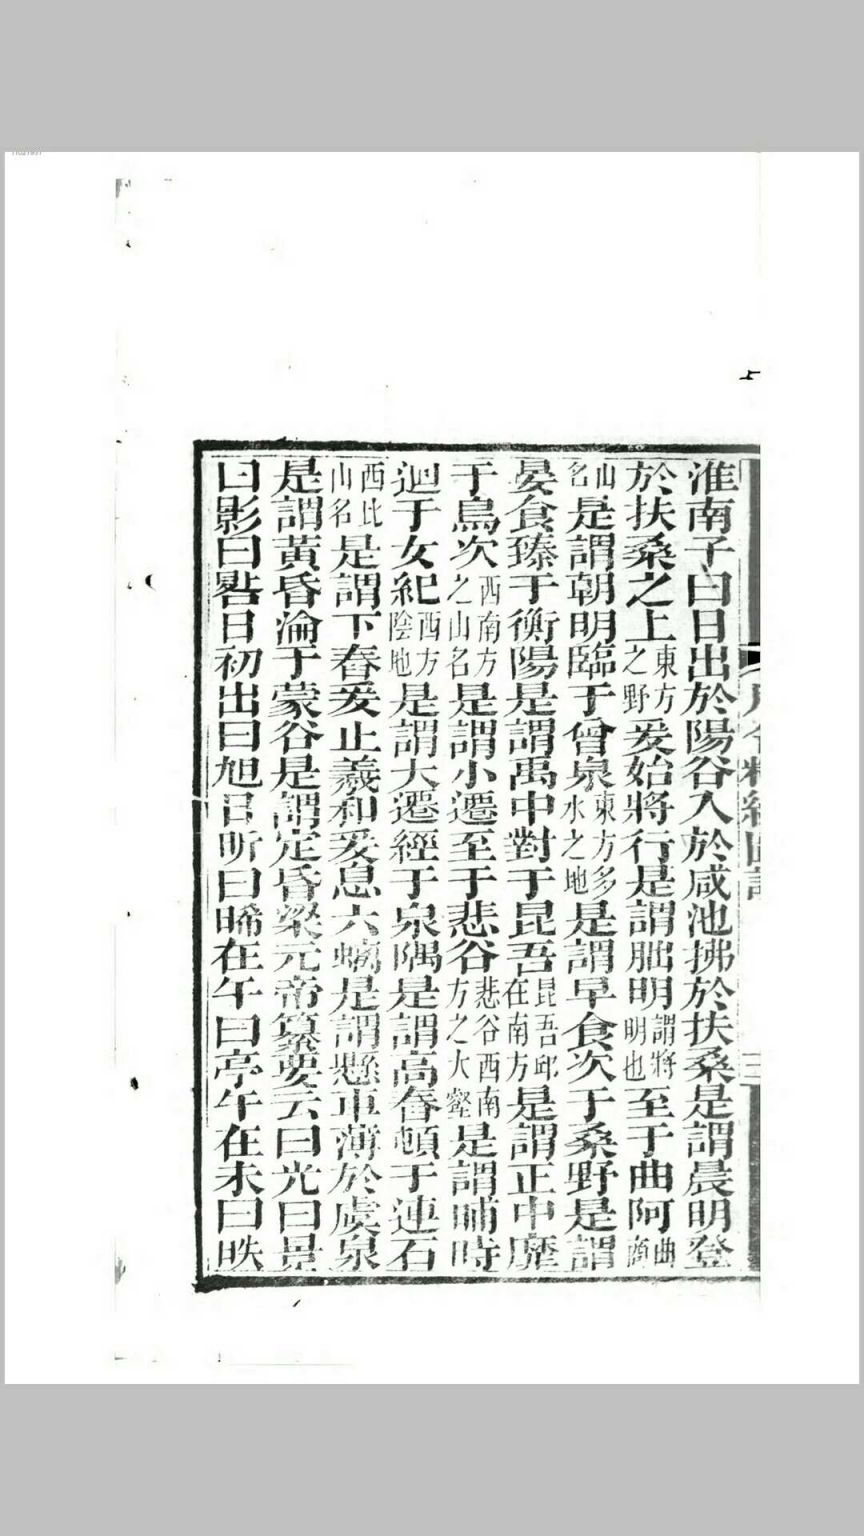 淮南子曰日出於陽谷入於咸池拂於扶桑是謂晨明登
於扶桑之上東方之野爰始將行是謂朏明謂將明也至于曲阿曲阿
山名是謂朝明臨于曾泉東方多水之地是謂早食次于桑野是謂
晏食臻于衡陽是謂禺中對于昆吾昆吾邱在南方是謂正中靡
于鳥次西南方之山名是謂小遷至于悲谷悲谷西南方之大壑是謂晡時
迴于女紀西方陰地是謂大遷經于泉隅是謂高舂頓于連石
西北山名是謂下舂爰止羲和爰息六螭是謂懸車薄於虞泉
是謂黃昏淪于蒙谷是謂定昏梁元帝纂要云日光曰景
日影曰晷日初出曰旭日昕曰晞在午曰亭午在未曰昳